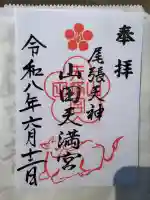 奉拝
尾張天神
山田天満宮
令和八年六月十二日